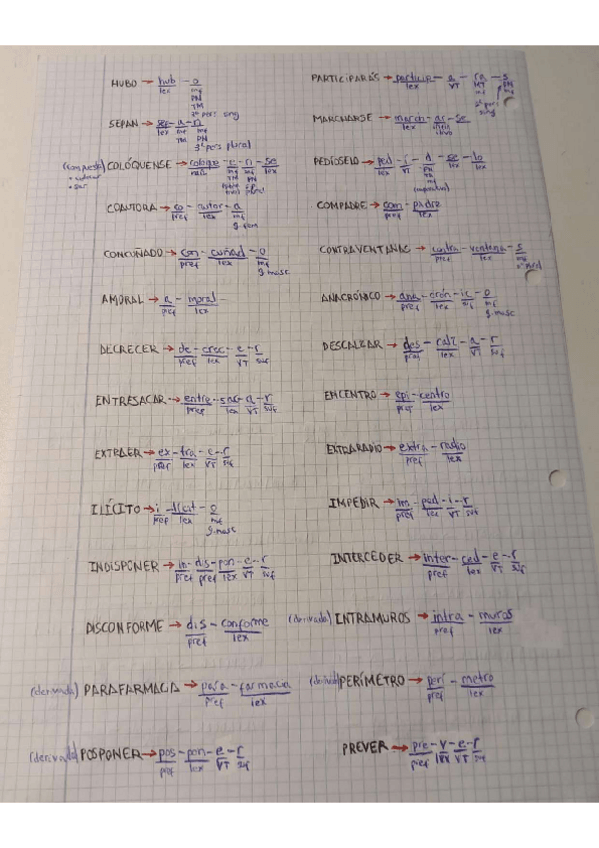 HUBO → hub - o
lex mf
PN
TM
3ª pers sing
PARTICIPARÁS → particip - a - ra - s
lex VT MT PN
mf mf
2ª pers
sing
SEPAN → sep - a - n
lex mf mf
TM PN
3ª pers plural
MARCHARSE → march - ar - se
lex
(compuesta) COLÓQUENSE → coloqu - e - n - se
• colocar
• ser
mf mf lex
TM PN
plural
PEDÍOSELO → ped - í - d - se - lo
lex VT PN lex lex
mf
(imperativo)
COAUTORA → co - autor - a
pref lex mf
g. fem
COMPADRE → com - padre
pref lex
CONCUÑADO → con - cuñad - o
pref lex mf
g. masc
CONTRAVENTANAS → contra - ventana - s
pref lex mf
AMORAL → a - moral
pref lex
ANACRÓNICO → ana - crón - ic - o
pref lex suf mf
g. masc
DECRECER → de - crec - e - r
pref lex VT suf
DESCALZAR → des - calz - a - r
pref lex VT suf
ENTRESACAR → entre - sac - a - r
pref lex VT suf
EPICENTRO → epi - centro
pref lex
EXTRAER → ex - tra - e - r
pref lex VT suf
EXTRARADIO → extra - radio
pref lex
ILÍCITO → i - lícit - o
pref lex mf
g. masc
IMPEDIR → im - ped - i - r
pref lex VT suf
INDISPONER → in - dis - pon - e - r
pref pref lex VT suf
INTERCEDER → inter - ced - e - r
pref lex VT suf
DISCONFORME → dis - conforme
pref lex
(derivada) INTRAMUROS → intra - muros
pref lex
(derivada) PARAFARMACIA → para - farmacia
pref lex
PERÍMETRO → perí - metro
pref lex
(derivada) POSPONER → pos - pon - e - r
pref lex VT suf
PREVER → pre - v - e - r
pref lex VT suf